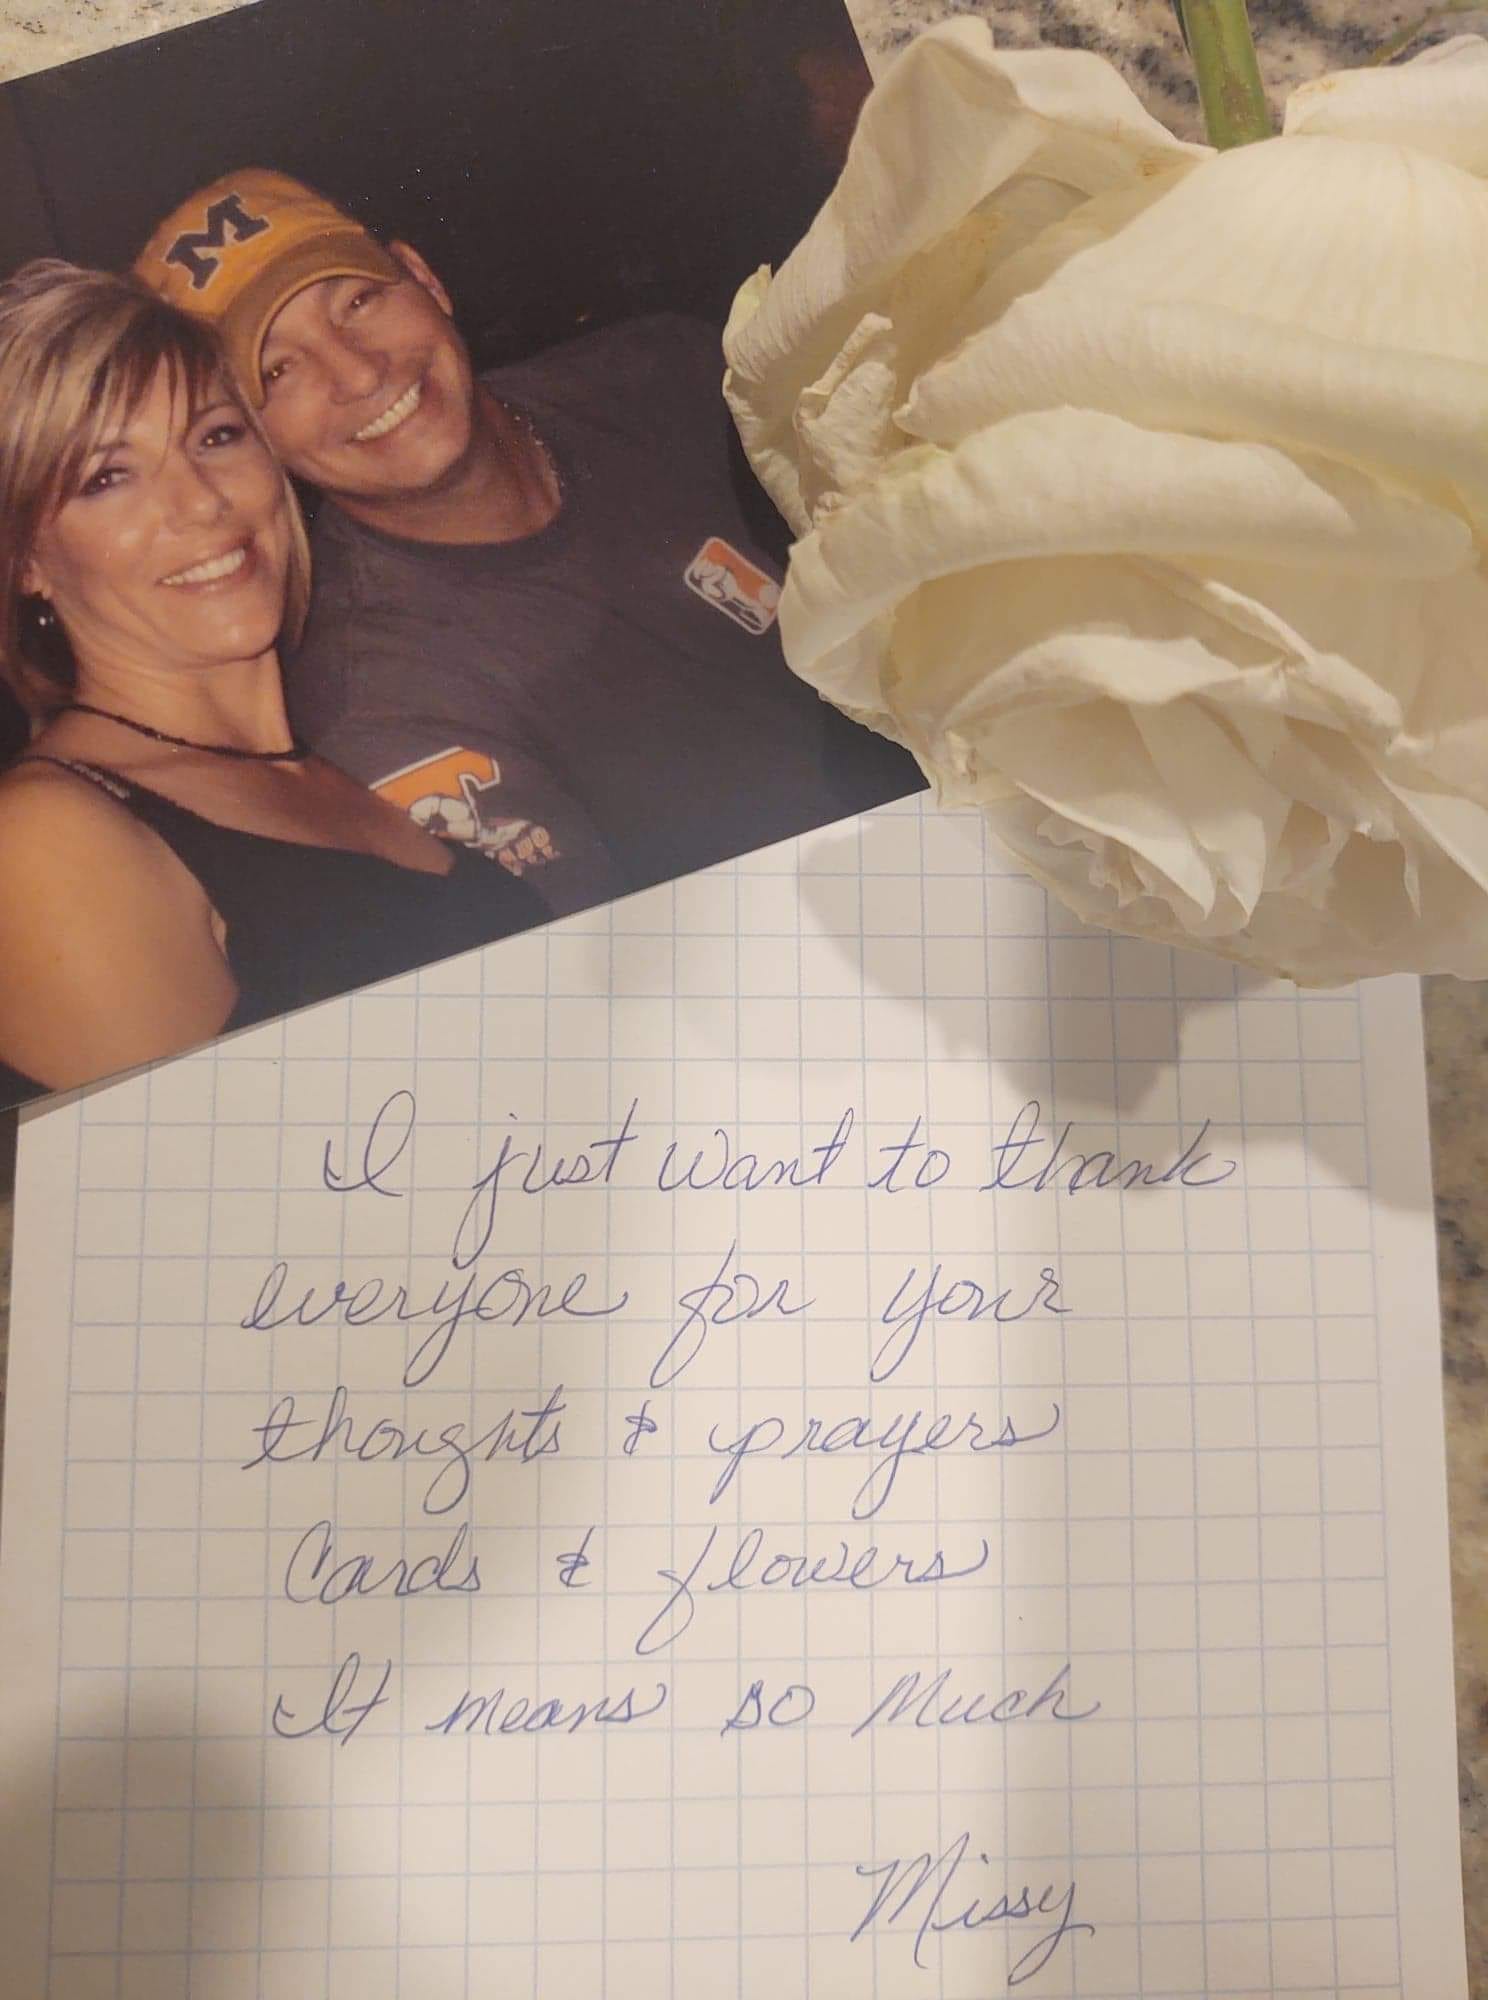 M
I just want to thank
everyone for your
thoughts & prayers
Cards & flowers
It means so Much
Missy